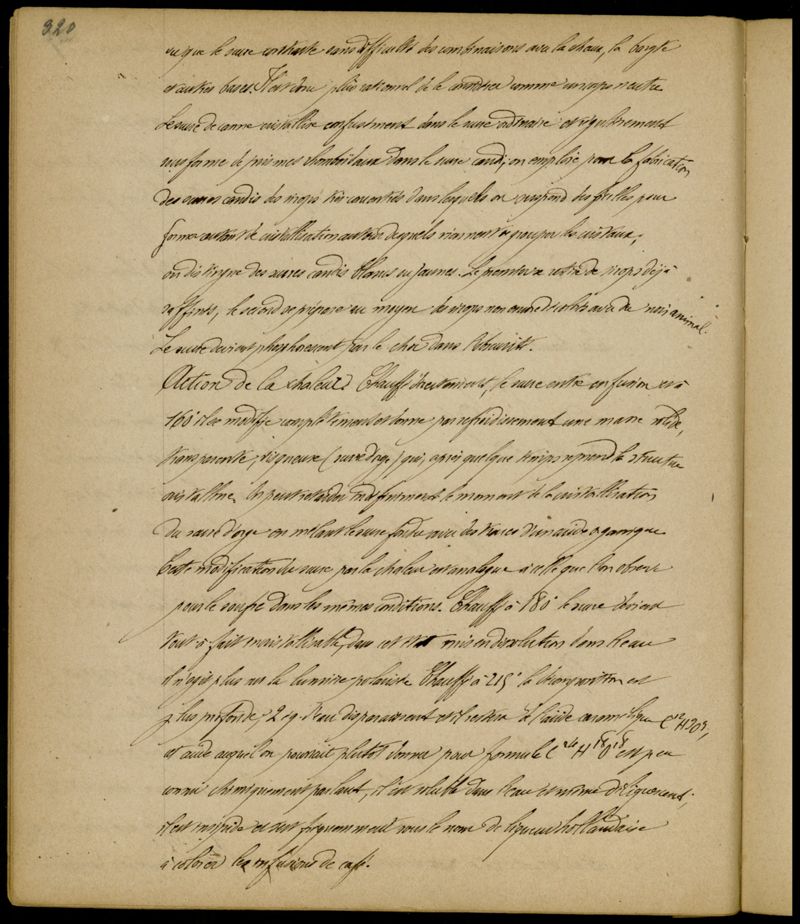 320
vu que le sucre contracte sans difficulté des combinaisons avec la chaux, la baryte
et autres bases. Il est donc plus rationnel de le considérer comme un corps neutre
Le sucre de canne cristallise confusément dans le sucre ordinaire et régulièrement
sous forme de prismes rhomboïdaux dans le sucre candi; on emploie pour la fabrication
des sucres candis des sirops très concentrés dans lesquels on suspend des ficelles pour
former centre de cristallisation autour desquels viennent se grouper les cristaux;
on distingue des sucres candis blancs ou jaunes. Le premier se retire de sirops déjà
raffinés, le second se prépare au moyen de sirops non encore décolorés au du noir animal.
Le sucre devient phosphorescent par le choc dans l'obscurité.
Action de la chaleur. Chauffé directement, le sucre entre en fusion vers
160° il se modifie complètement et donne par refroidissement une masse solide,
transparente, visqueuse (sucre d'orge) qui, après quelque temps reprend la structure
cristalline. On peut retarder indéfiniment le moment de la cristallisation
du sucre d'orge en mêlant le sucre fondu avec des traces d'un acide organique
Cette modification du sucre par la chaleur est analogue à celle que l'on observe
pour le soufre dans les mêmes conditions. Chauffé à 180° le sucre devient
tout à fait incristallisable, dans cet état mis en dissolution dans l'eau
il n'agit plus sur la lumière polarisée Chauffé à 215° la décomposition est
plus profonde, 2 éq. d'eau disparaissent et il reste de l'acide caramélique C¹²H⁹O⁹,
cet acide auquel on pourrait plutôt donner pour formule C²⁴H¹⁸O¹⁸ est peu
connu chimiquement parlant, il est soluble dans l'eau et même déliquescent;
il est insipide et sert fréquemment sous le nom de liqueur hollandaise
à colorer les infusions de café.